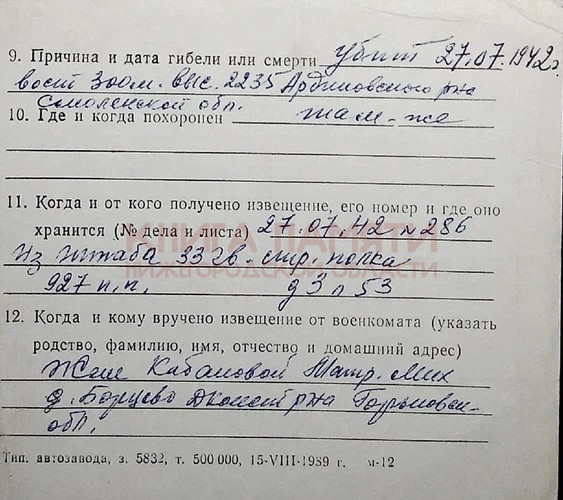 9. Причина и дата гибели или смерти убит 27.07.1942г.
вост 300м. выс. 2235 Ардиновского р-на
Смоленской обл.
10. Где и когда похоронен там-же
11. Когда и от кого получено извещение, его номер и где оно
хранится (№ дела и листа) 27.07.42 №286
КНИГА ПАМЯТИ
из штаба 33 гв. стр. полка
НИЖЕГОРОДСКОЙ ОБЛАСТИ
927 п.п. д 3 л 53
12. Когда и кому вручено извещение от военкомата (указать
родство, фамилию, имя, отчество и домашний адрес)
Жене Кабановой Матр. Мих
д. Борцово Дконст р-на Горьковск-
обл.
Тип. автозавода, з. 5832, т. 500 000, 15-VIII-1989 г. м-12